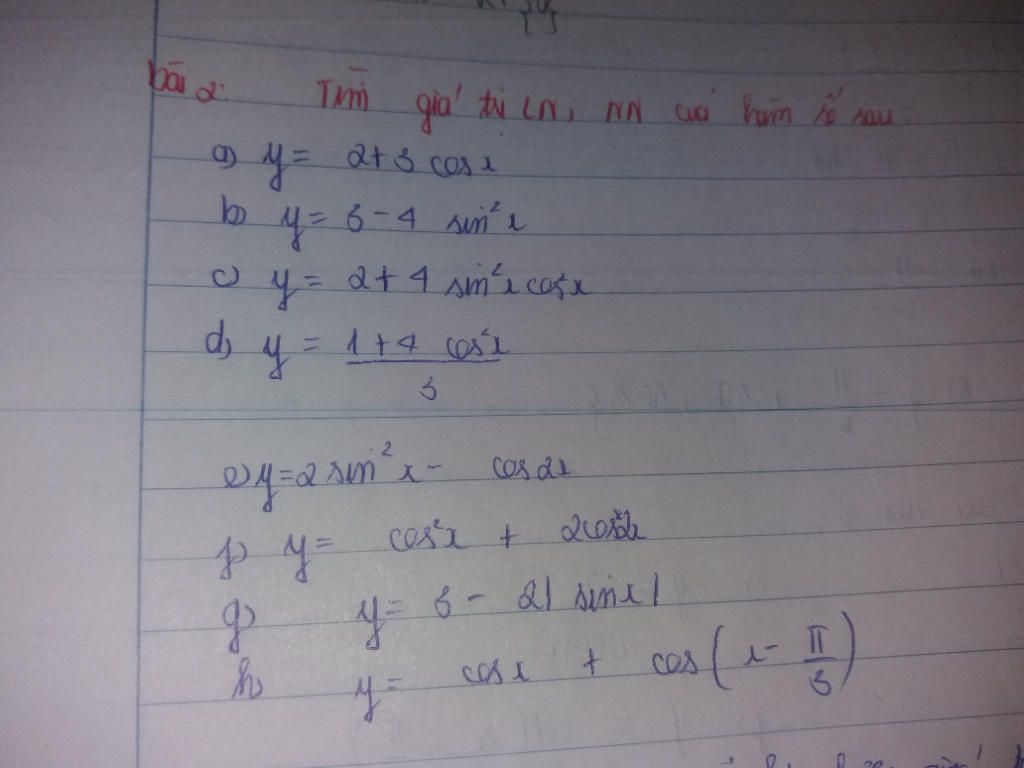 bài 2: Tìm giá trị LN, NN của hàm số sau:
a) y = 2+3 cosx
b) y = 3 - 4 sin²x
c) y = 2+4 sin²x cos²x
d) y = 1+4 cos²x
3
e) y=2 sin²x - cos2x
f) y = cos²x + 2cos2x
g) y = 3 - 2| sinx|
h) y = cosx + cos(x - π/3)